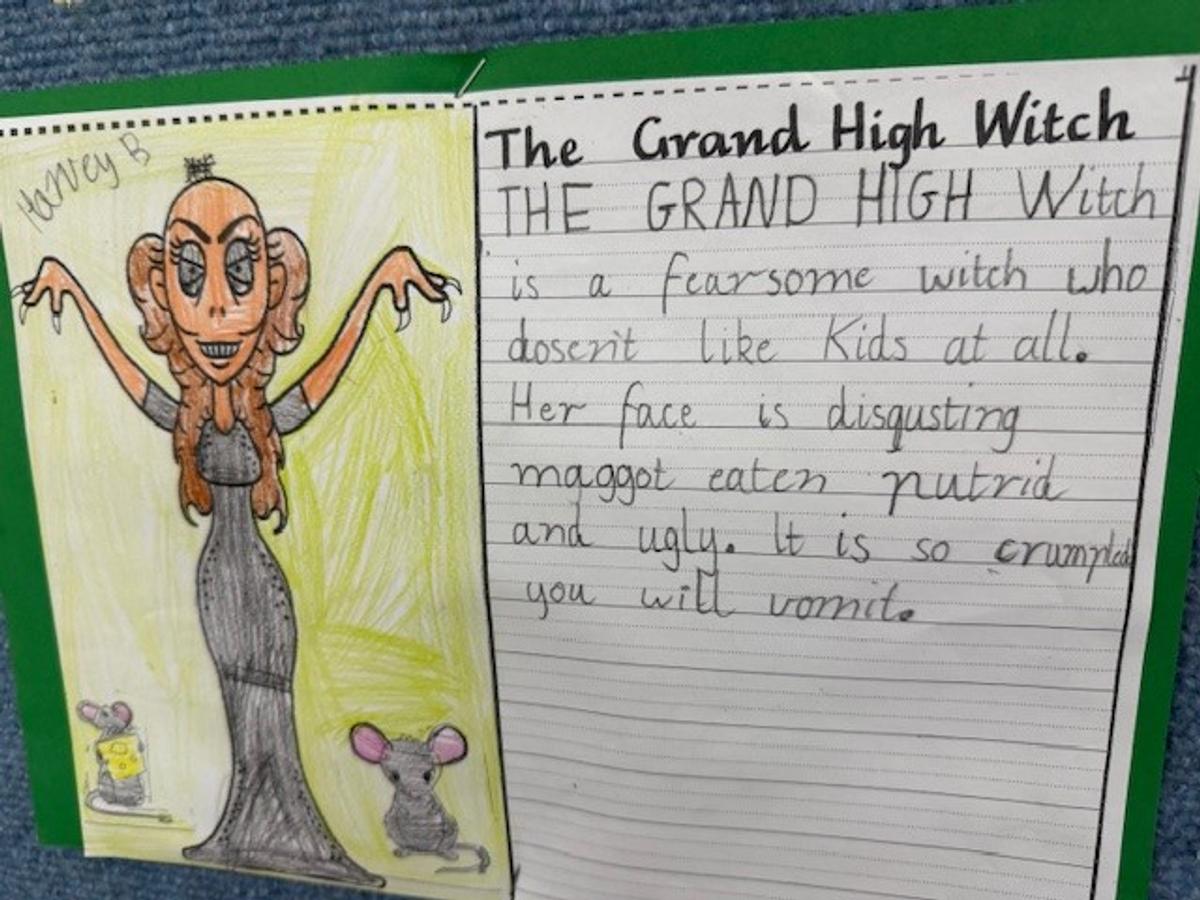 Harvey B
The Grand High Witch
THE GRAND HIGH Witch
is a fearsome witch who
dosen't like Kids at all.
Her face is disgusting
maggot eaten putrid
and ugly. It is so crumpled
you will vomit.